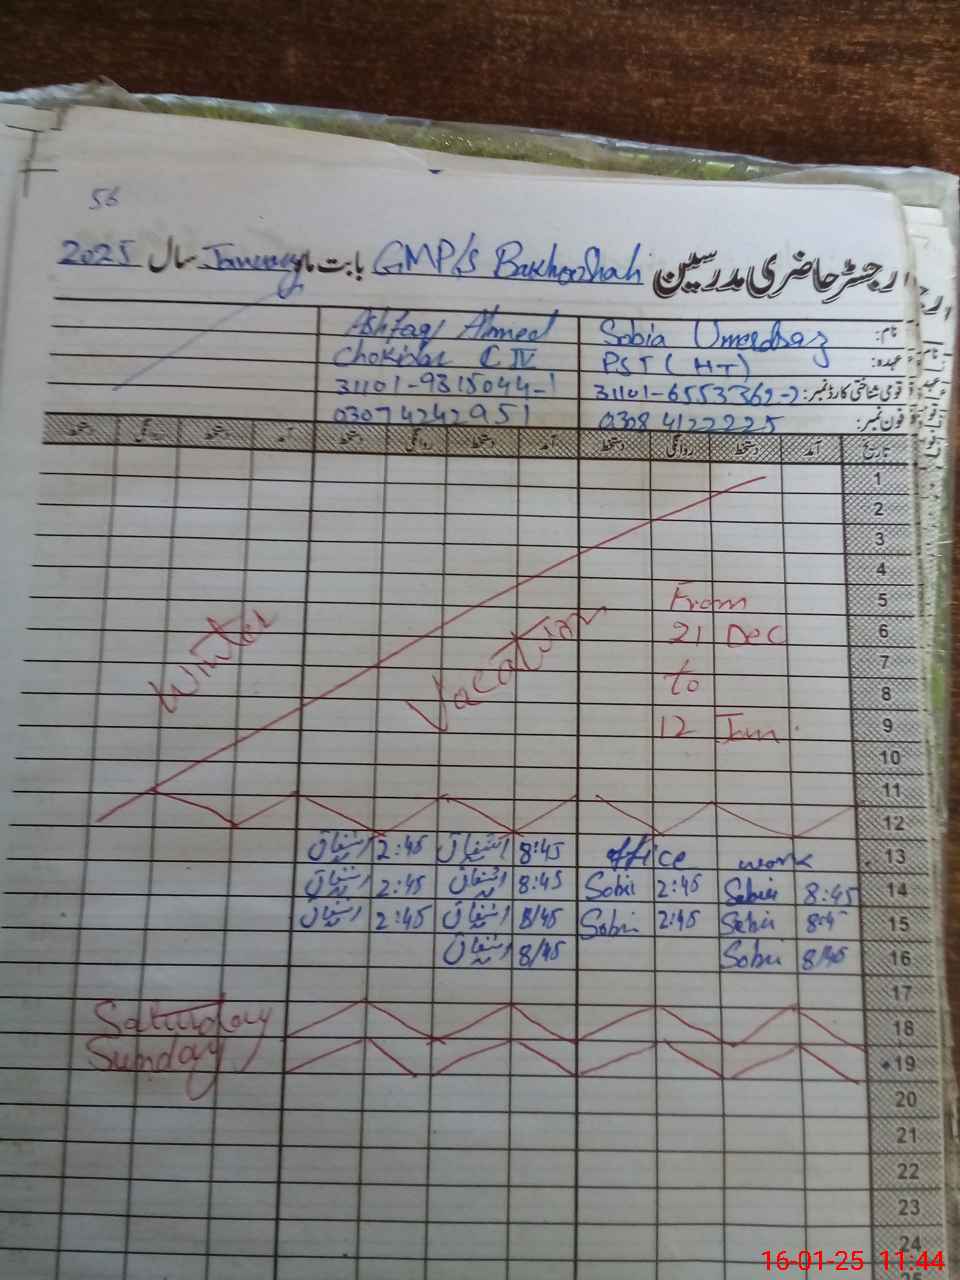 56
رجسٹر حاضری مدرسین GMP/s Bakhoo Shah بابت ماہ January سال 2025
نام: Sobia Umerdraz Ashfaq Ahmed
عہدہ: PST (HT) Chokidar C IV
قومی شناختی کارڈ نمبر: 31101-6553362-2 31101-9315044-1
فون نمبر: 0308 4122225 03074242951
تاریخ آمد دستخط روانگی دستخط آمد دستخط روانگی دستخط آمد دستخط روانگی دستخط
1
2
3
4
5 From
6 21 Dec
Winter Vacation
7
8 to
9 12 Jan.
10
11
12
13 office work 8:45 اشفاق 2:45 اشفاق
14 8:45 Sobia 2:45 Sobia 8:45 اشفاق 2:45 اشفاق
15 8:4 Sobia 2:45 Sobia 8/45 اشفاق 2:45 اشفاق
16 8/45 Sobia 8/45 اشفاق
17
18 Saturday
19 Sunday
20
21
22
23
24
16-01-25 11:44